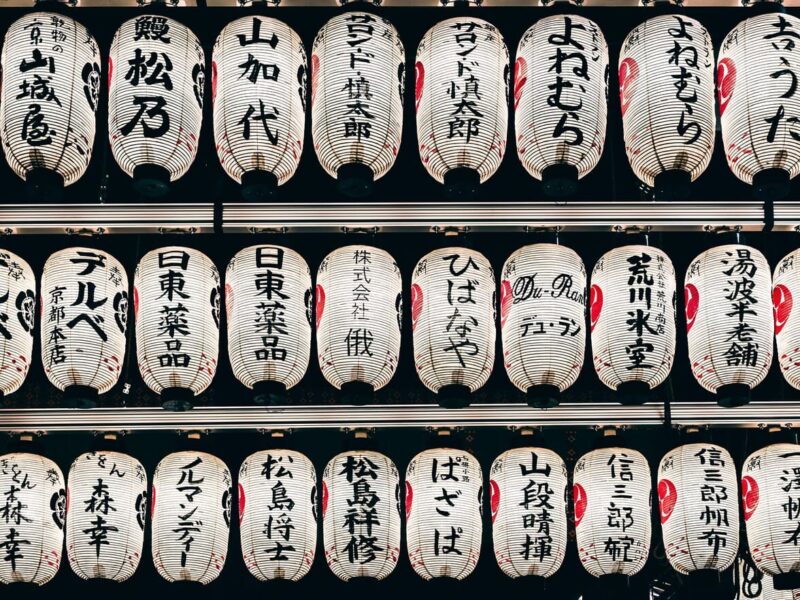 山城屋
鰻
松乃
山加代
サロンド
慎太郎
サロンド
慎太郎
よねむら
よねむら
吉うた
デルベ
京都本店
日東薬品
日東薬品
株式会社
俄
ひばなや
Du-Ran
デュ・ラン
荒川氷室
株式会社荒川商店
湯波半老舗
ぎをん
森幸
ぎをん
森幸
ノルマンディー
松島将士
松島祥修
ぱざぱ
山段晴揮
信三郎
信三郎帆布
一澤帆布